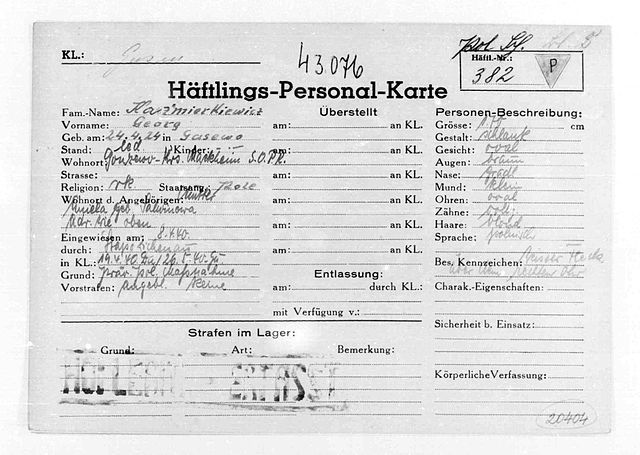 KL.: Gusen
43076
pol Sch.
Häftl.-Nr.:
382
P
Häftlings-Personal-Karte
Fam.-Name: Kazimierkiewicz
Vorname: Georg
Geb. am: 24.4.24 in Gasewo
Stand: led. Kinder:
Wohnort:
Strasse:
Religion: rk. Staatsang. Pole
Wohnort d. Angehörigen: Mutter
wie oben
Eingewiesen am: 8.4.40
durch: Stapo Zichenau
in KL.: 19.4.40 Da/26.5.40 Gu
Grund:
Vorstrafen: angebl. keine
Überstellt
am: an KL.
am: an KL.
am: an KL.
am: an KL.
am: an KL.
am: an KL.
Entlassung:
am: durch KL.:
mit Verfügung v.:
Personen-Beschreibung:
Grösse: cm
Gestalt: schlank
Gesicht: oval
Augen: braun
Nase: grad
Mund: klein
Ohren: oval
Zähne:
Haare: blond
Sprache: polnisch
Bes. Kennzeichen:
Charak.-Eigenschaften:
Sicherheit b. Einsatz:
Körperliche Verfassung:
Strafen im Lager:
Grund: Art: Bemerkung:
HOLLERITH ERFASST
20404